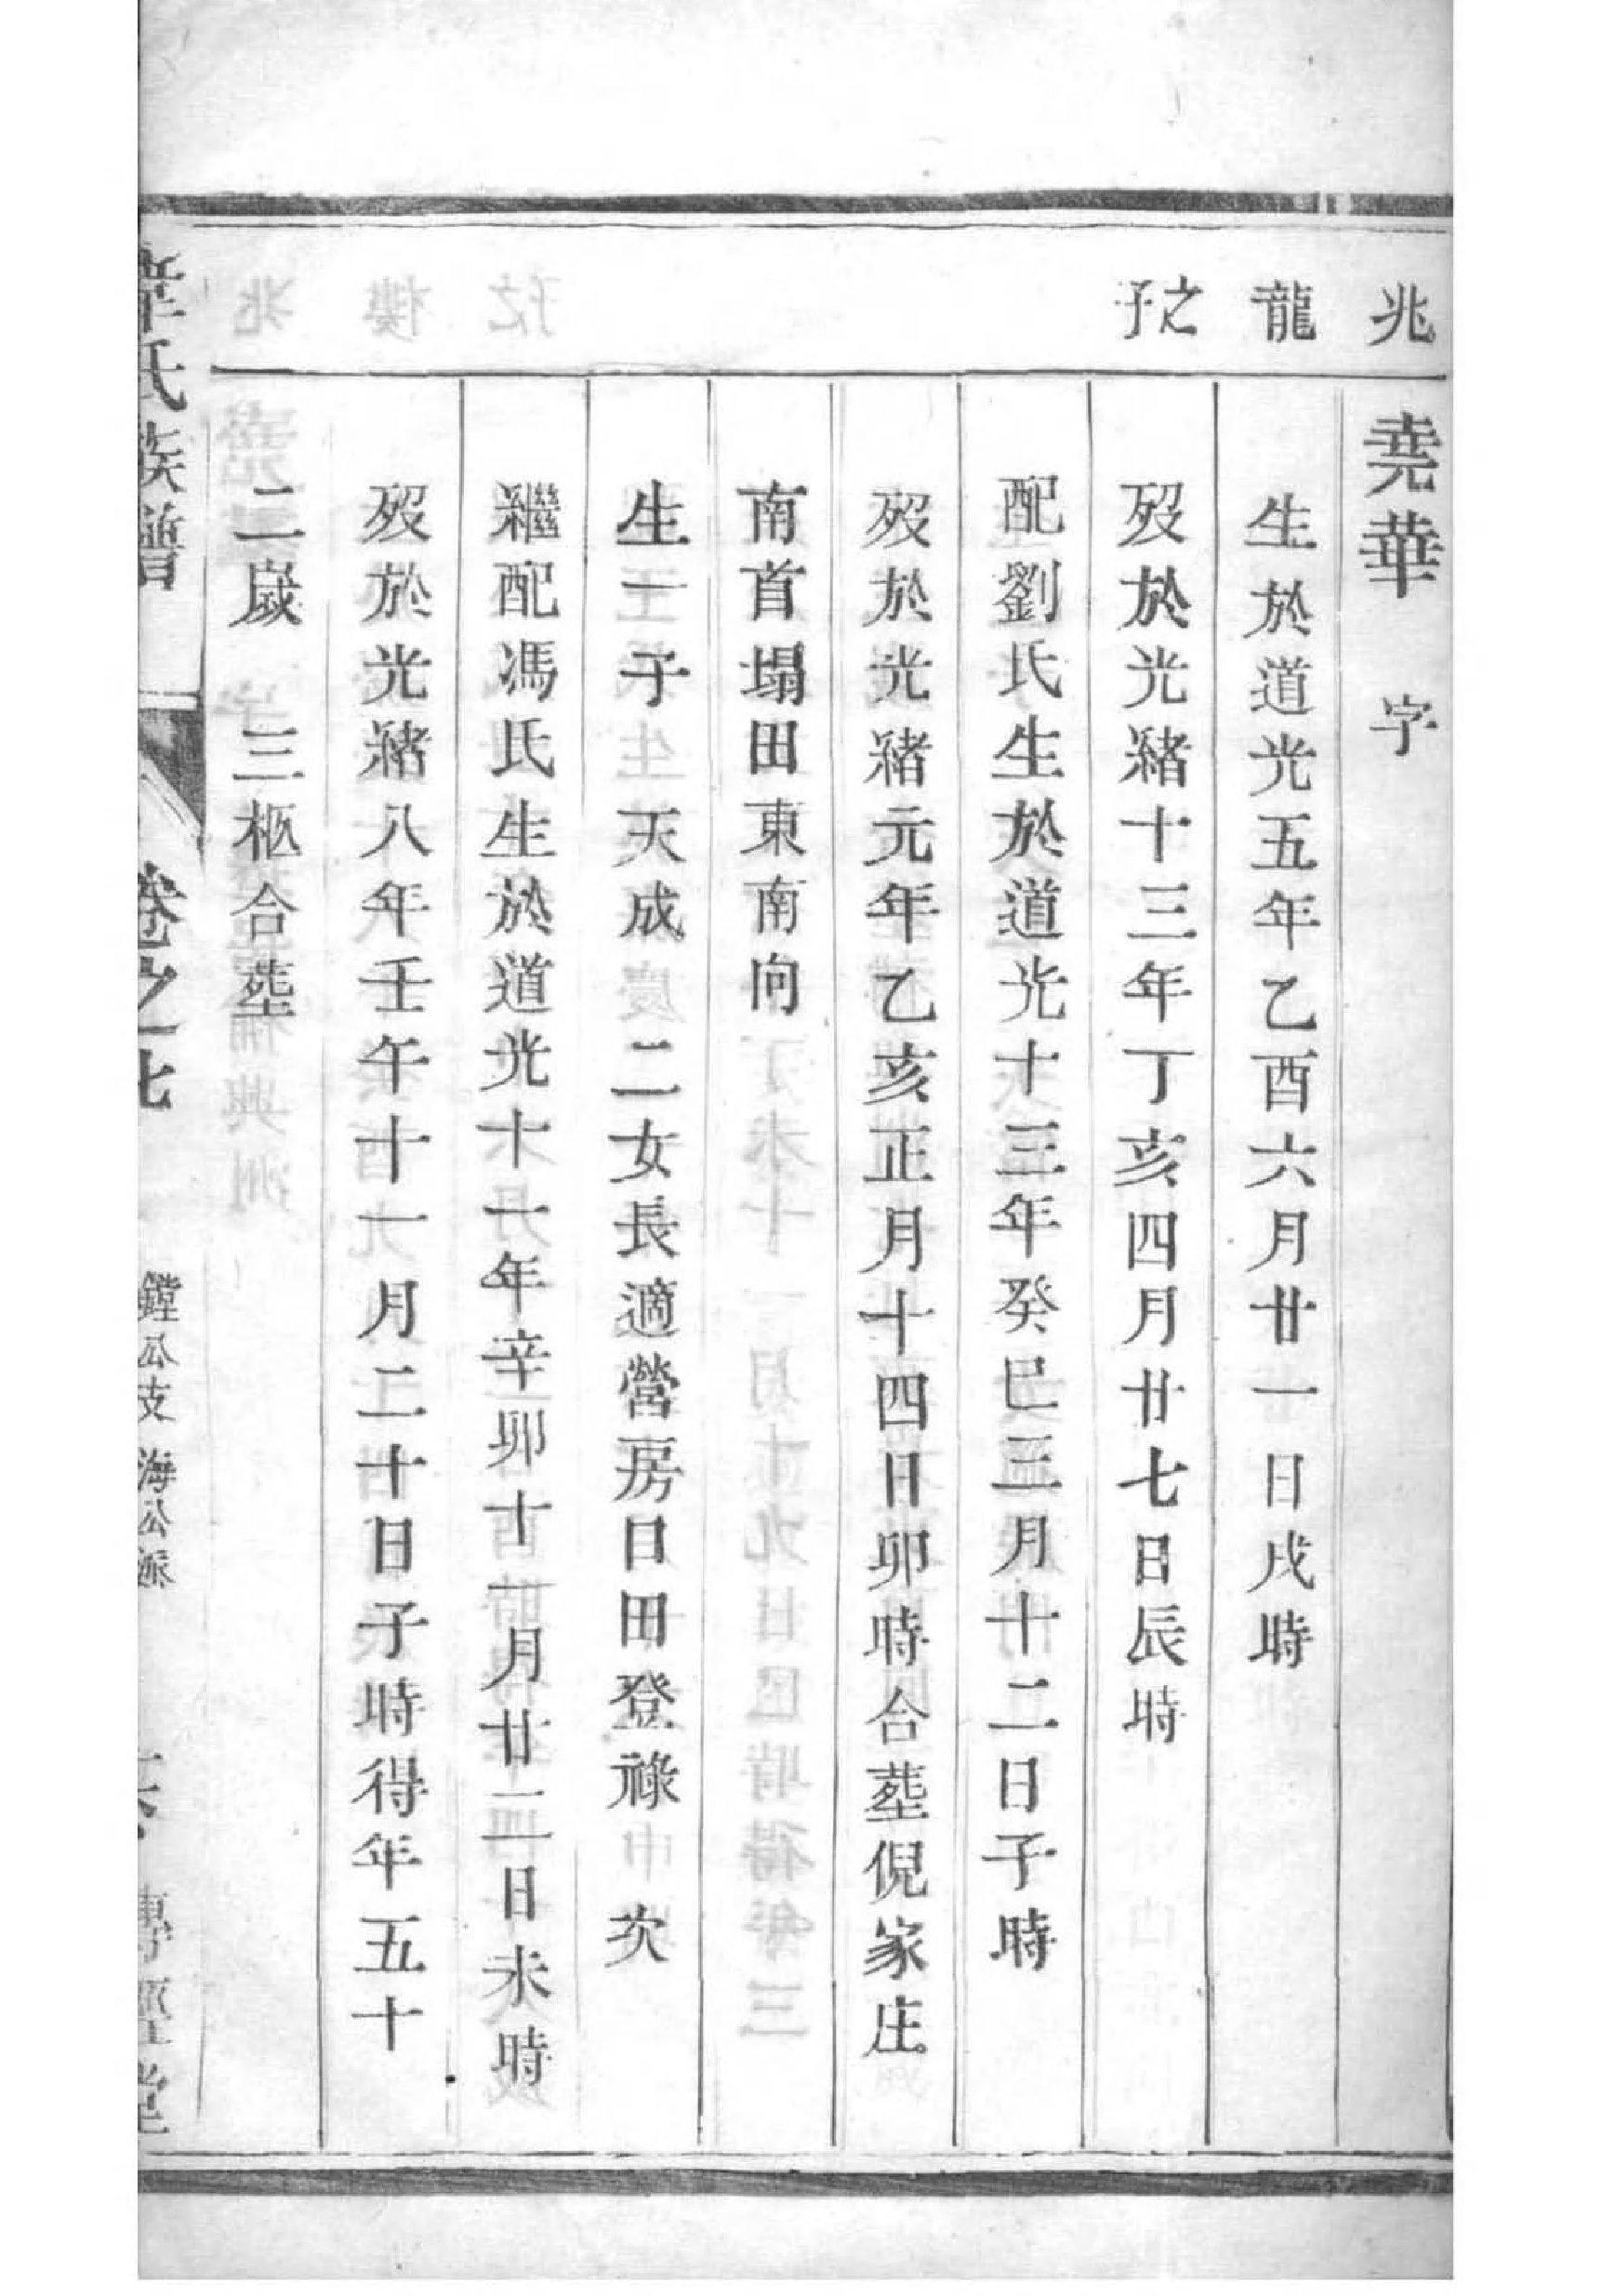 兆龍之子
堯華 字
生於道光五年乙酉六月廿一日戌時
歿於光緒十三年丁亥四月廿七日辰時
配劉氏生於道光十三年癸巳三月十二日子時
歿於光緒元年乙亥正月十四日卯時合塟倪家庄
南首塌田東南向
生一子 天成 二女長適營房日田登祿 次
繼配馮氏生於道光十一年辛卯十一月廿二日未時
歿於光緒八年壬午十一月二十日子時得年五十
二歲 三柩合塟
氏族譜
卷之七
鏜公支 海公派